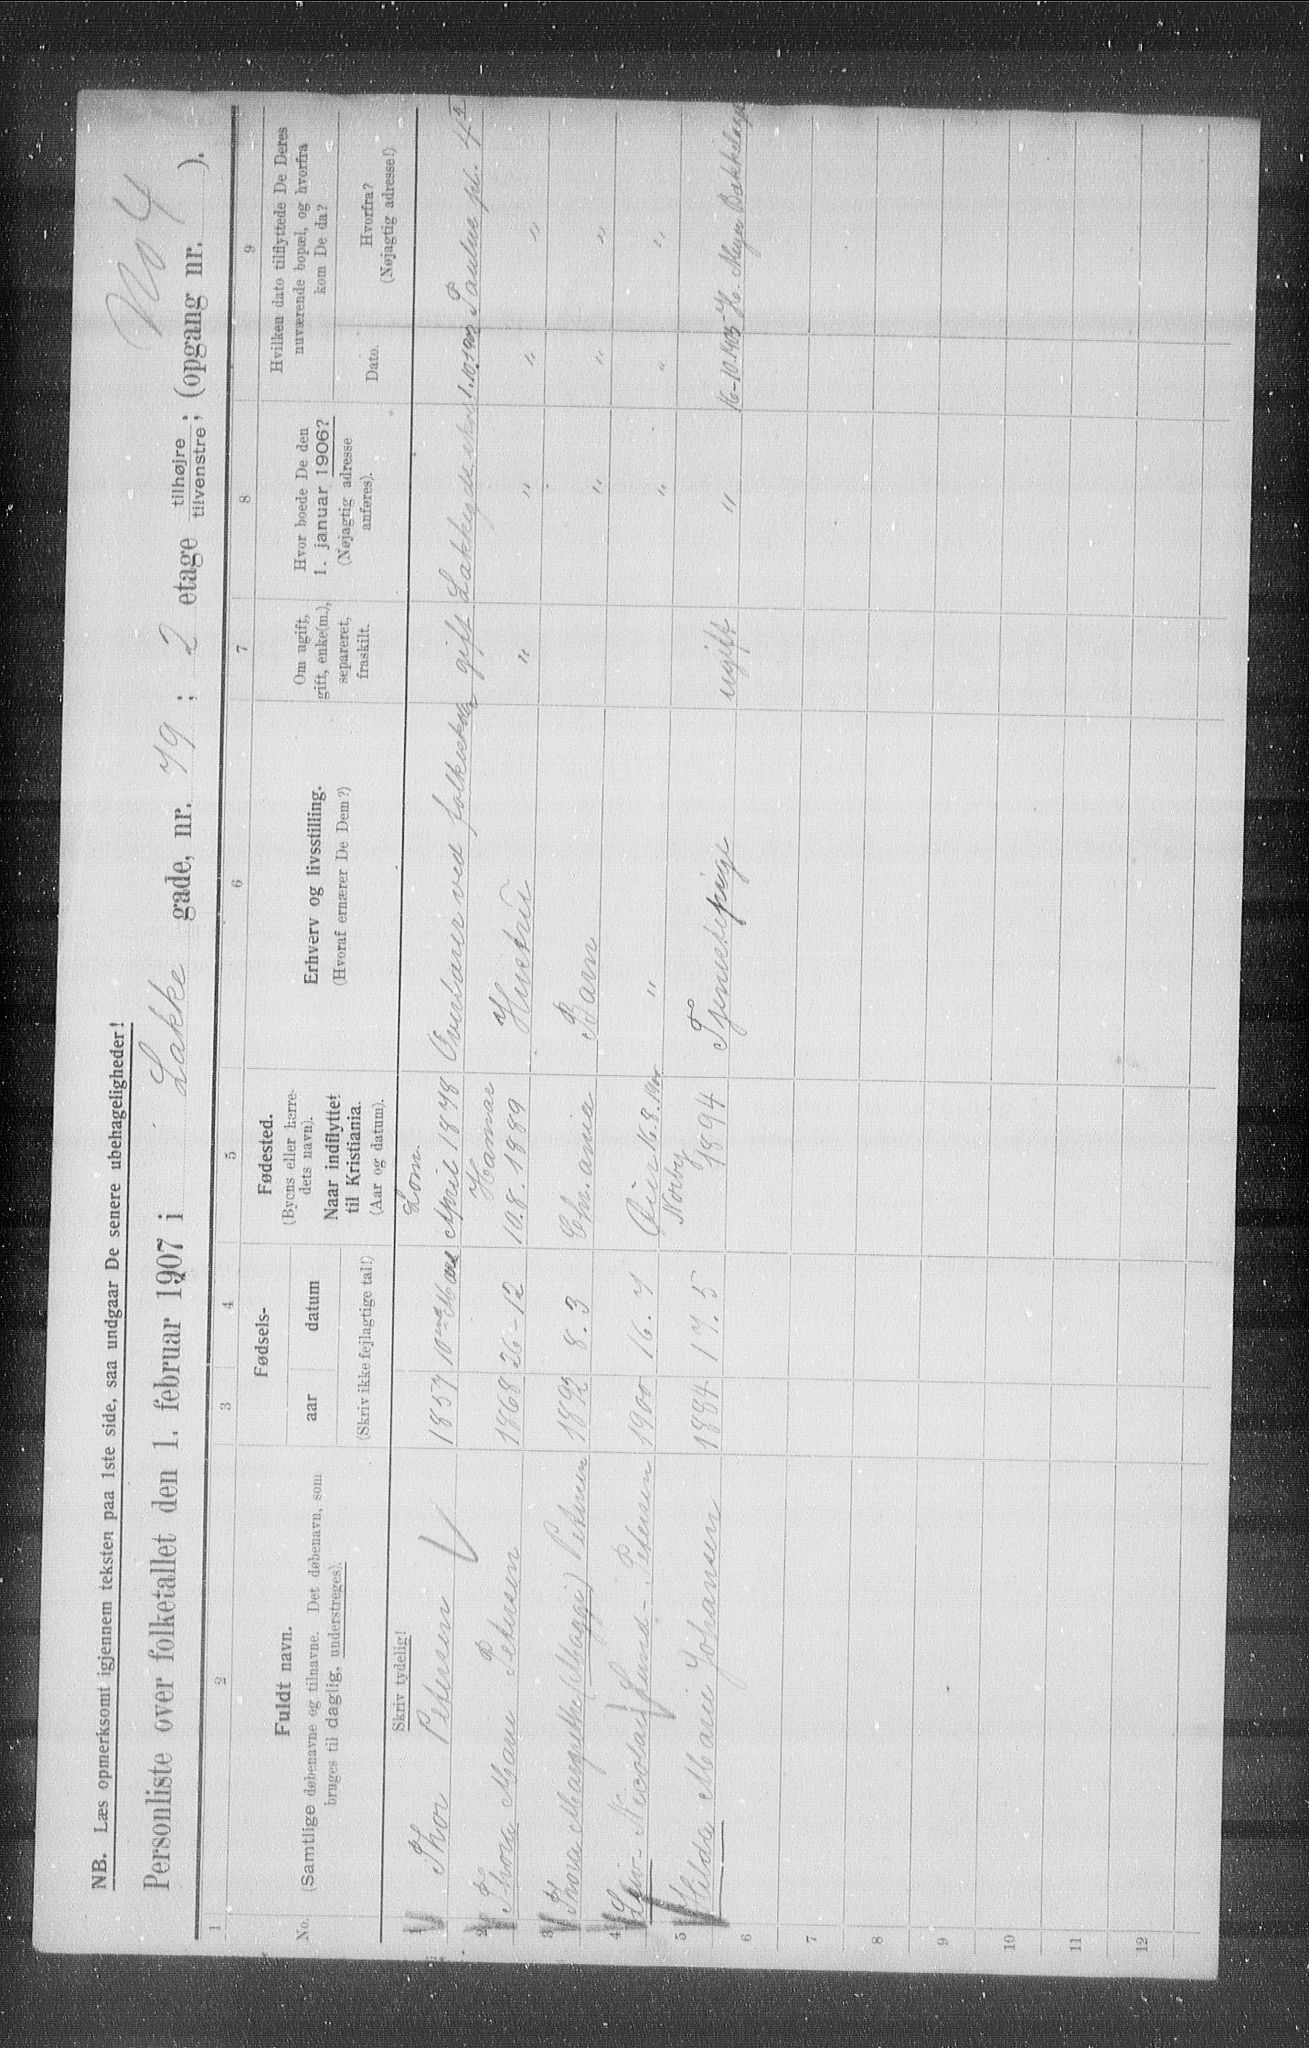 NB. Læs opmerksomt igjennem teksten paa 1ste side, saa undgaar De senere ubehageligheder!
No 4
Personliste over folketallet den 1. februar 1907 i Lakke gade, nr. 79; 2 etage tilhøjre tilvenstre; (opgang nr. ).
1 2 3 4 5 6 7 8 9
No. Fuldt navn. (Samtlige døbenavne og tilnavne. Det døbenavn, som bruges til daglig, understreges). Skriv tydelig!
Fødsels- aar datum (Skriv ikke fejlagtige tal!)
Fødested. (Byens eller herredets navn). Naar indflyttet til Kristiania. (Aar og datum).
Erhverv og livsstilling. (Hvoraf ernærer De Dem?)
Om ugift, gift, enke(m.), separeret, fraskilt.
Hvor boede De den 1. januar 1906? (Nøjagtig adresse anføres).
Hvilken dato tilflyttede De Deres nuværende bopæl, og hvorfra kom De da? Dato. Hvorfra? (Nøjagtig adresse!)
1 Thor Petersen 1857 10de Mars Lom April 1878 Overlærer ved folkeskolen gift Lakkegd. skole 1.10.1903 Paulus pl. 4
2 Thora Marie Petersen 1868 26-12 Hamar 10.8.1889 Hustru " " " "
3 Thora Margrethe (Maggi) Petersen 1892 8.3 Chr.ania Barn " " "
4 Leiv-Nicolai Lund-Petersen 1900 16.7 16.8.1900 " " " "
5 Hilda Marie Johansen 1884 17.5 Norby 1894 Tjenestepige ugift " 16-10.1903 H. Meyer Bakkehaug
6
7
8
9
10
11
12